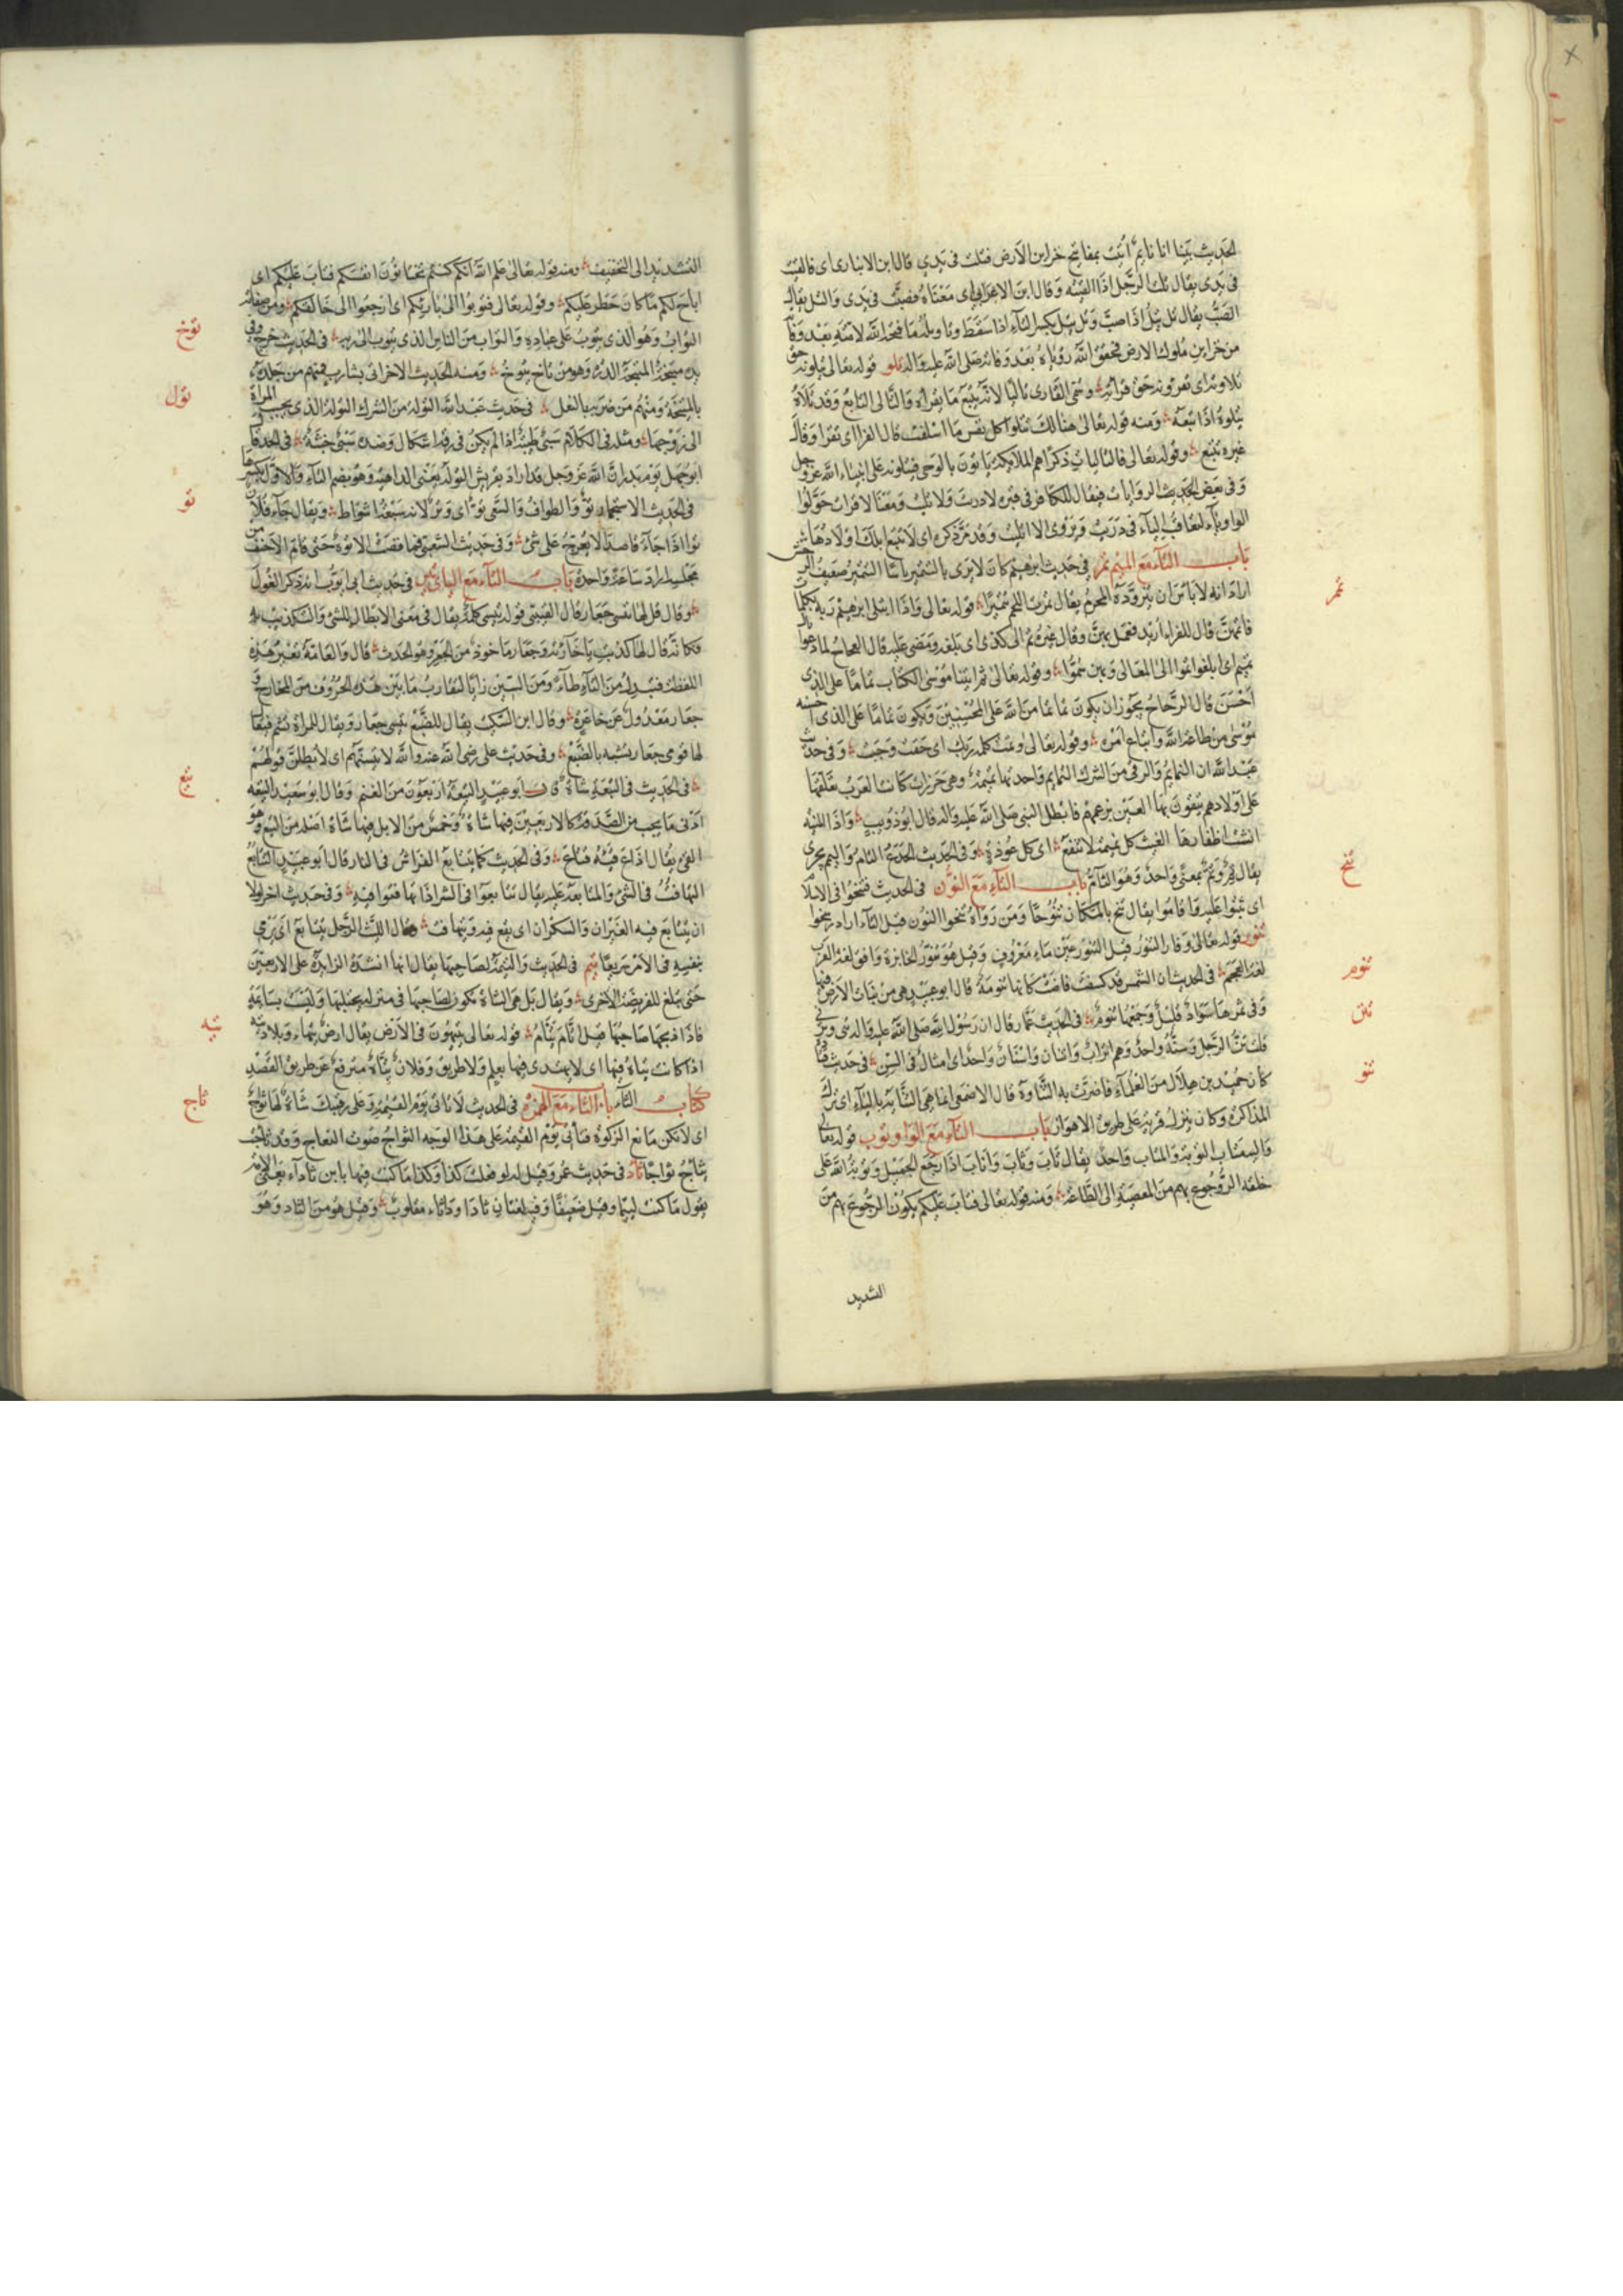 الحديث بينا انا نايم أتيت بمفاتيح خزاين الارض فتلت في يدي قال ابن الانباري اى فالقيت
في يدى يقال تللت الرجل اذا القيته وقال ابن الاعرابي اى معناه فصبت في يدى والتل
الصب يقال تل يتل اذا صب وتل يتل بكسر التاء اذا سقط
من خزاين ملوك الارض فحقق الله رؤياه بعد وفاته صلى الله عليه واله تلو قوله تعالى يتلونه حق
تلاوته اى يقرؤنه حق قراته وسمى القارى تاليا لانه يتبع ما يقرأه والتالى التابع وقد تلاه
يتلوه اذا تبعه ومنه قوله تعالى هنالك تتلوا كل نفس ما اسلفت قال الفرا اى تقرا وقال
غيره تتبع وقوله تعالى فالتاليات ذكرا هم الملايكة ياتون بالوحي فيتلونه على انبياء الله عز وجل
وفي بعض الحديث الروايات فيقال للكافر في قبره لا دريت ولا تليت ومعنا لا قرات حولوا
الواو ياء لتعاقب الياء في دريت ويروى الا اتليت وقد مر ذكره اى لا تتبع ابلك اولادها
باب التاء مع الميم تمر في حديث ابرهيم كان لا يرى بالتتمير باسا التتمير صفيف
اراد انه لا باس ان يتزوده المحرم يقال تمرت اللحم تتميرا قوله تعالى واذا ابتلى ابرهيم ربه بكلمات
فاتمهن قال الفراء اريد فعمل بهن وقال غيره تم الى كذى اى بلغه ومضى عليه قال العجاج لما دعوا
تميم اى ابلغوا تموا الى المعالى وبهن سموا وقوله تعالى ثم اتينا موسى الكتاب تماما على الذى
احسن قال الزجاج يجوز ان يكون تماما من الله على المحسنين ويكون تماما على الذى احسنه
موسى من طاعة الله واتباع امره وقوله تعالى وتمت كلمة ربك اى حقت ووجبت وفى حديث
عبد الله ان التمايم والرقى من الشرك التمايم واحدتها تميمة وهى خرزات كانت العرب تعلقها
على اولادهم يتقون بها العين بزعمهم فابطل النبي صلى الله عليه واله قال ابو ذويب واذا المنيه
انشبت اظفارها الفيت كل تميمة لا تنفع اى كل عوذة وفى الحديث الجذع التام
يقال تم وتم بمعنى واحد وهو التام باب التاء مع النون في الحديث
اى ثبتوا عليه واقاموا يقال تنخ بالمكان تنوخا ومن رواه نتخوا النون قبل التاء اراد رسخوا
تنور قوله تعالى وفار التنور قيل التنور عين ماء معروف وقيل هو تنور الخابزة وافق لغة العرب
لغة العجم في الحديث ان الشمس قد كسفت فاضت كانها تنومة قال ابو عبيد هى من نبات الارض فيها
وفى ثمرها سواد قليل وجمعها تنوم في الحديث عمار قال ان رسول الله صلى الله عليه واله تنى وتربي
فلان تن الرجل وسنه واحد وهم اتراب واتنان واسنان واحد اى امثال في السن في حديث قتاده
كان حميد بن هلال من العلماء فاضرت به التناوة قال الاصمعى انما هى التناية بالياء اى ترك
المذاكرة وكان ينزل قرية على طريق الاهواز باب التاء مع الواو توب قوله تعالى
واليه متاب التوبة والمتاب واحد يقال تاب وثاب واناب اذا رجع الجميل وتوبة الله على
خلقه الرجوع بهم من المعصية الى الطاعة ومنه قوله تعالى فتاب عليكم يكون الرجوع بهم من
التشديد
تمر
تنخ
تنوم
تنن
تنو
التشديد الى التخفيف ومنه قوله تعالى علم الله انكم كنتم تختانون انفسكم فتاب عليكم اى
اباح لكم ما كان حظر عليكم وقوله تعالى فتوبوا الى بارئكم اى ارجعوا الى خالقكم ومن صفاته
التواب وهو الذى يتوب على عباده والتواب من الناس الذى يتوب الى ربه في الحديث خرج وفى
يده متيخة المتيخة الدرة وهو من تاخ يتوخ ومنه الحديث الاخر اتى بشارب فمنهم من جلده
بالمتيخة ومنهم من ضربه بالنعل في حديث عبد الله التولة من الشرك التولة الذى يحبب المراة
الى زوجها ومثله في الكلام سبى طيبة اذا لم يكن في رقه اشكال وضده سبى خبثة في الحديث قال
ابو جهل يوم بدر ان الله عز وجل قد اراد بقريش التولة يعنى الداهية وهو بضم التاء والاول بكسرها
في الحديث الاستجمار تو والطواف والسعى تو اى وتر لانه سبعة اشواط ويقال جاء فلان
توا اذا جاء قاصدا لا يعرج على شئ وفى حديث الشعبى فما مضت الا توة حتى قام الاحنف من
مجلسه اراد ساعة واحدة باب التاء مع الياء تيس في حديث ابى ايوب انه ذكر الغول
وقال قل لها تيسى جعار قال القتيبى قوله تيسى كلمة يقال في معنى الابطال للشئ والتكذيب به
فكانه قال لها كذبت يا خاربة وجعار ماخوذ من الجعر وهو الحدث قال والعامة تغير هذه
اللفظة فتبدل من التاء طاء ومن السين زايا لتقارب ما بين هذه الحروف من المخارج
جعار معدول عن جاعره وقال ابن السكيت يقال للضبع تيسى جعار ويقال للمراة تشتم فيقال
لها قومى جعار تشبه بالضبع وفى حديث على رضى الله عنه والله لا تيستهم اى لا بطلن قولهم
في الحديث في التيعة شاة قال ابو عبيد التيعة اربعون من الغنم وقال ابو سعيد التيعه
ادنى ما يجب من الصدقة كالاربعين فيها شاة وخمس من الابل فيها شاة اصله من التيع وهو
القئ يقال اتاع قيئه فتاع وفى الحديث كما يتتايع الفراش في النار قال ابو عبيد التتايع
التهافت في الشئ والمتايعة عليه يقال تتايعوا في الشر اذا تهافتوا فيه وفى حديث اخر لولا
ان يتتايع فيه الغيران والسكران اى يقع فيه ويتهافت وقال الليث الرجل يتتايع اى يرمى
بنفسه في الامر سريعا تيم في الحديث والتيمة لصاحبها يقال انها الشاة الزايدة على الاربعين
حتى يبلغ الفريضة الاخرى ويقال بل هى الشاة تكون لصاحبها في منزله يحتلبها وليست بسايمة
فاذا ذبحها صاحبها قيل اتام يتام قوله تعالى يتيهون في الارض يقال ارض تيهاء وبلاد تيه
اذا كانت تياهة فيها اى لا يهتدى فيها بعلم ولا طريق وفلان تياه مترفع عن طريق القصد
كتاب الثاء باب الثاء مع الهمزة في الحديث لا تاتى يوم القيمة وعلى رقبتك شاة لها ثواج
اى لا تكن مانع الزكوة فتاتى يوم القيمة على هذا الوجه الثواج صوت النعاج وقد ثاجت
تثاج ثواجا ثأد في حديث عمر وقيل له لو فعلت كذا وكذا ما كنت فيها بابن ثاداء يعنى الامة
يقول ما كنت لئيما وقيل ضعيفا وفيه لغتان ثادا وداثاء مقلوب وقيل هو من الثاد وهو
توخ
تول
تو
تيع
تيه
ثاج